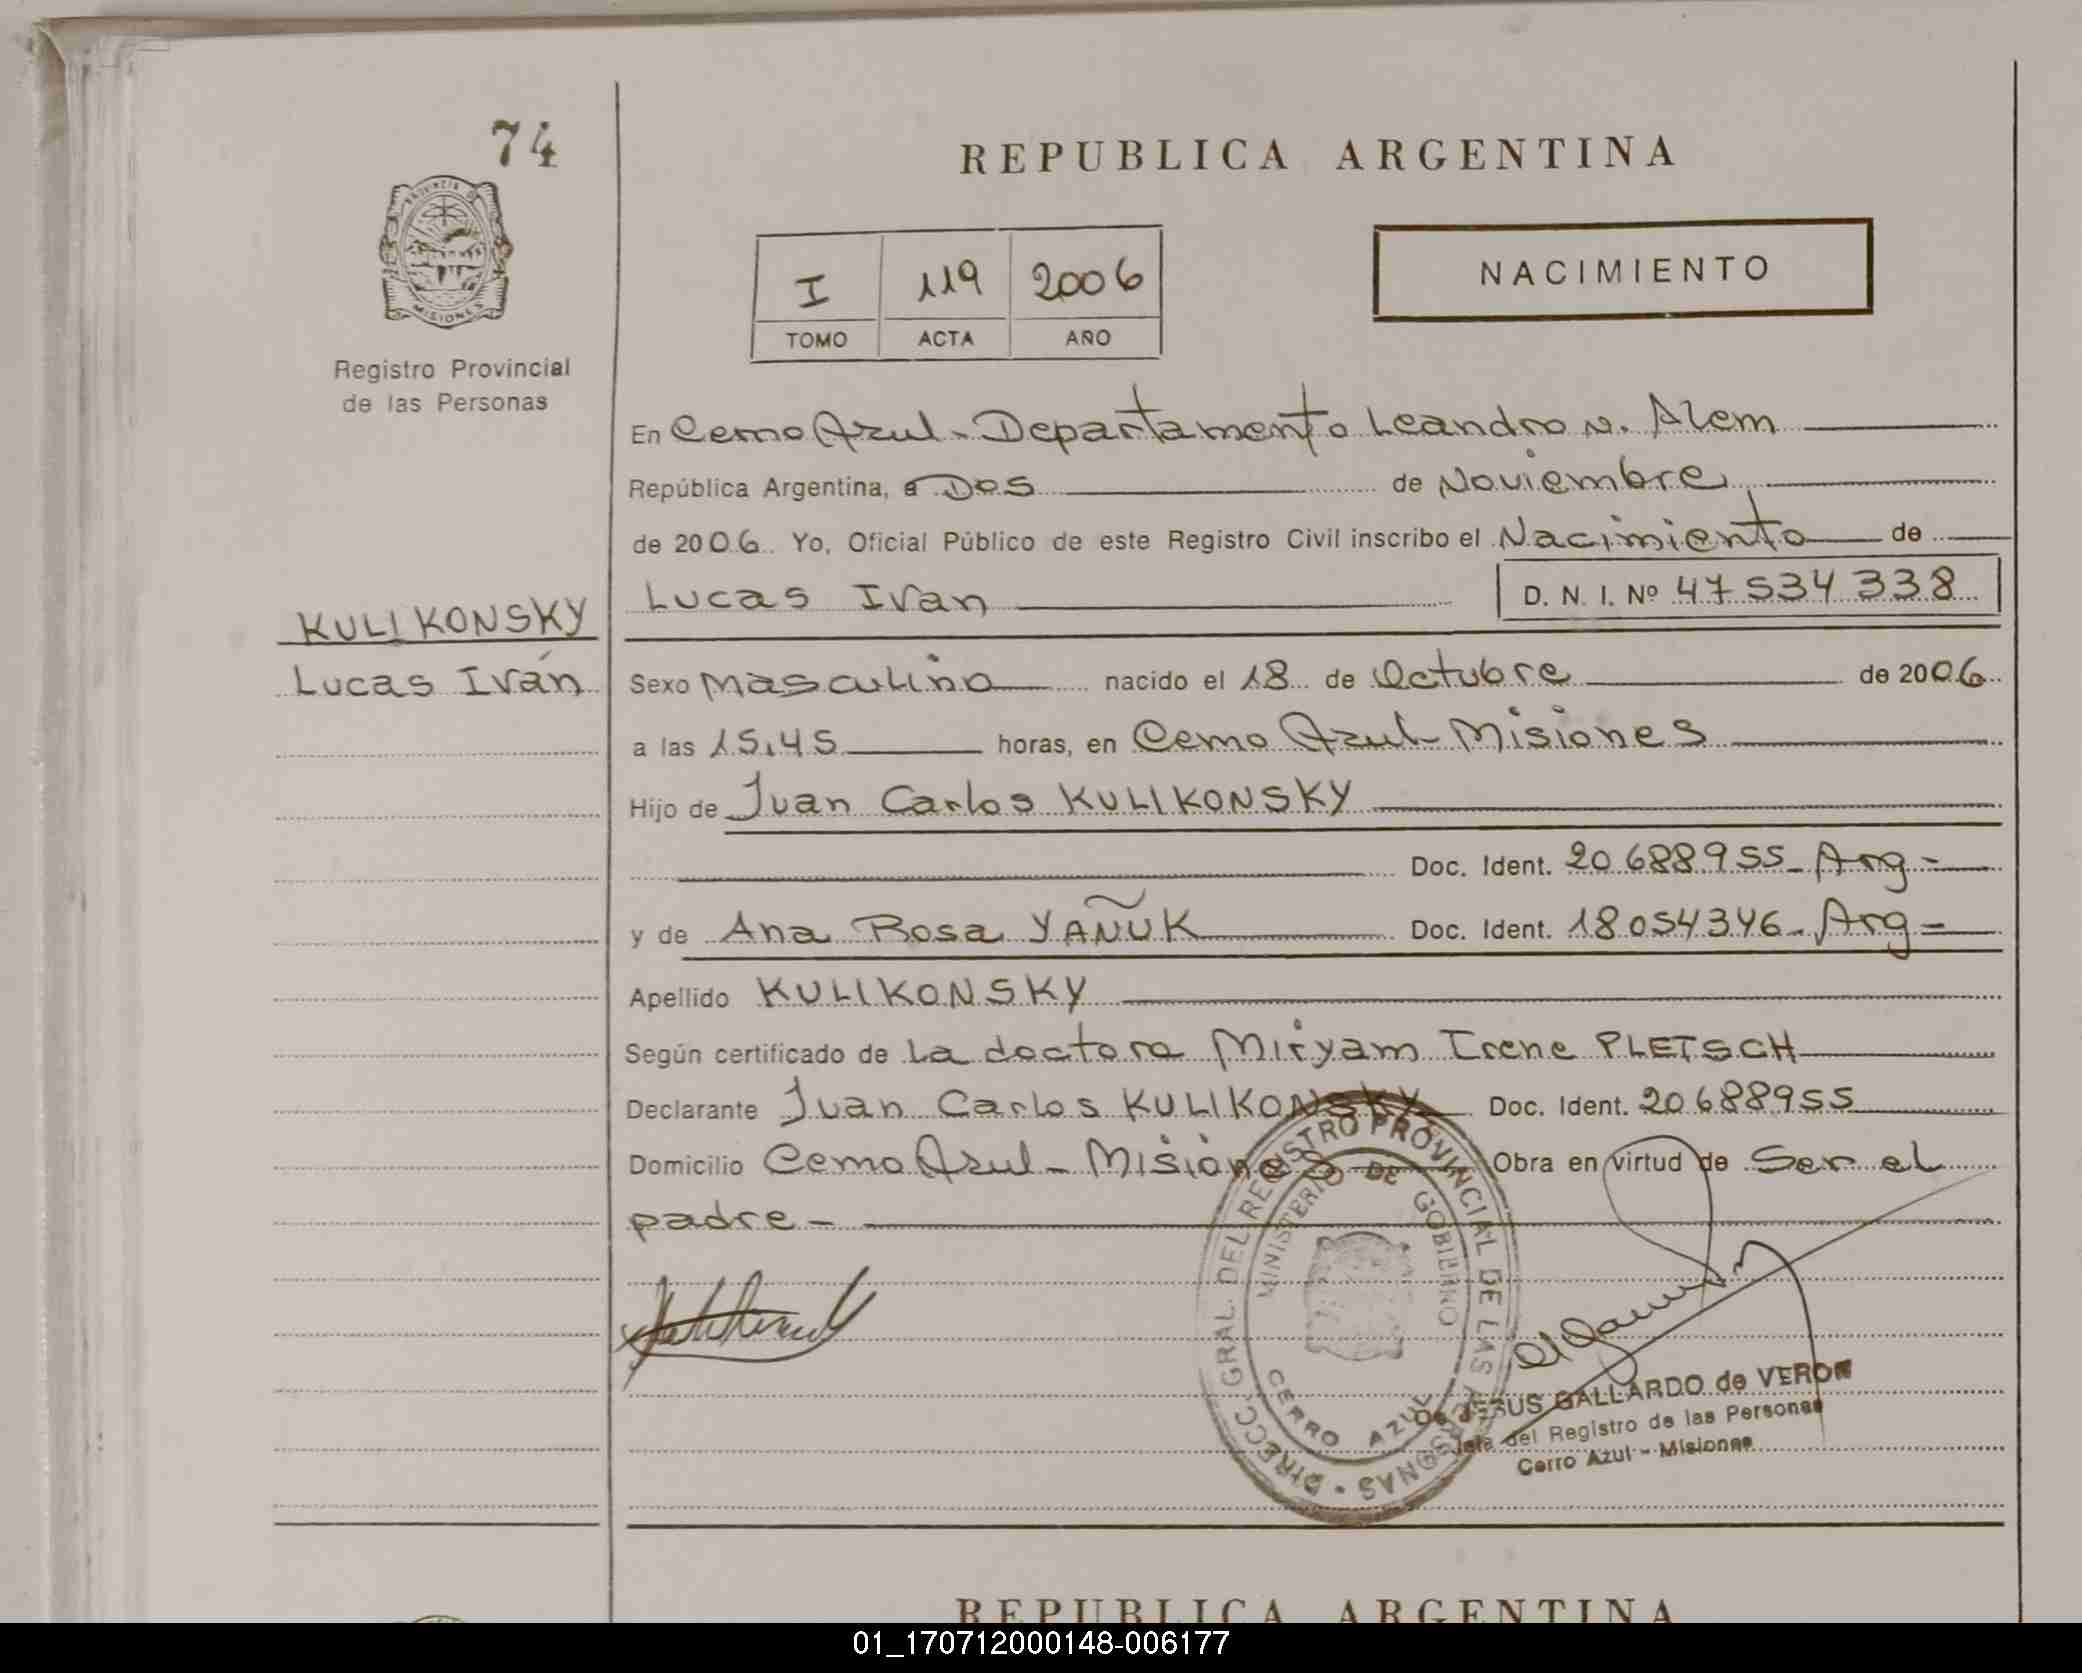 74
PROVINCIA DE
MISIONES
Registro Provincial
de las Personas
KULIKONSKY
Lucas Iván
REPUBLICA ARGENTINA
I 119 2006
TOMO ACTA AÑO
NACIMIENTO
En Cerro Azul - Departamento Leandro N. Alem
República Argentina, a Dos de Noviembre
de 2006. Yo, Oficial Público de este Registro Civil inscribo el Nacimiento de
Lucas Ivan D. N. I. Nº 47534338
Sexo Masculino nacido el 18 de Octubre de 2006
a las 15,45 horas, en Cerro Azul - Misiones
Hijo de Juan Carlos KULIKONSKY
Doc. Ident. 20688955 - Arg -
y de Ana Rosa YAÑUK Doc. Ident. 18054346 - Arg -
Apellido KULIKONSKY
Según certificado de La doctora Miryam Irene PLETSCH
Declarante Juan Carlos KULIKONSKY Doc. Ident. 20688955
Domicilio Cerro Azul - Misiones Obra en virtud de Ser el
padre -
DIRECC. GRAL. DEL REGISTRO PROVINCIAL DE LAS PERSONAS
MINISTERIO DE GOBIERNO
CERRO AZUL
De JESUS GALLARDO de VERON
Jefa del Registro de las Personas
Cerro Azul - Misiones
REPUBLICA ARGENTINA
01_170712000148-006177